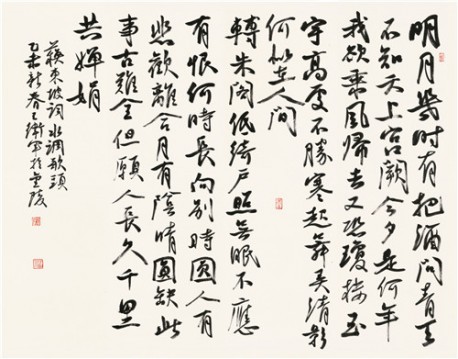 明月幾時有把酒問青天
不知天上宮闕今夕是何年
我欲乘風歸去又恐瓊樓玉
宇高處不勝寒起舞弄清影
何似在人間
轉朱閣低綺戶照無眠不應
有恨何時長向別時圓人有
悲歡離合月有陰晴圓缺此
事古難全但願人長久千里
共嬋娟
蘇東坡詞水調歌頭
乙未新春